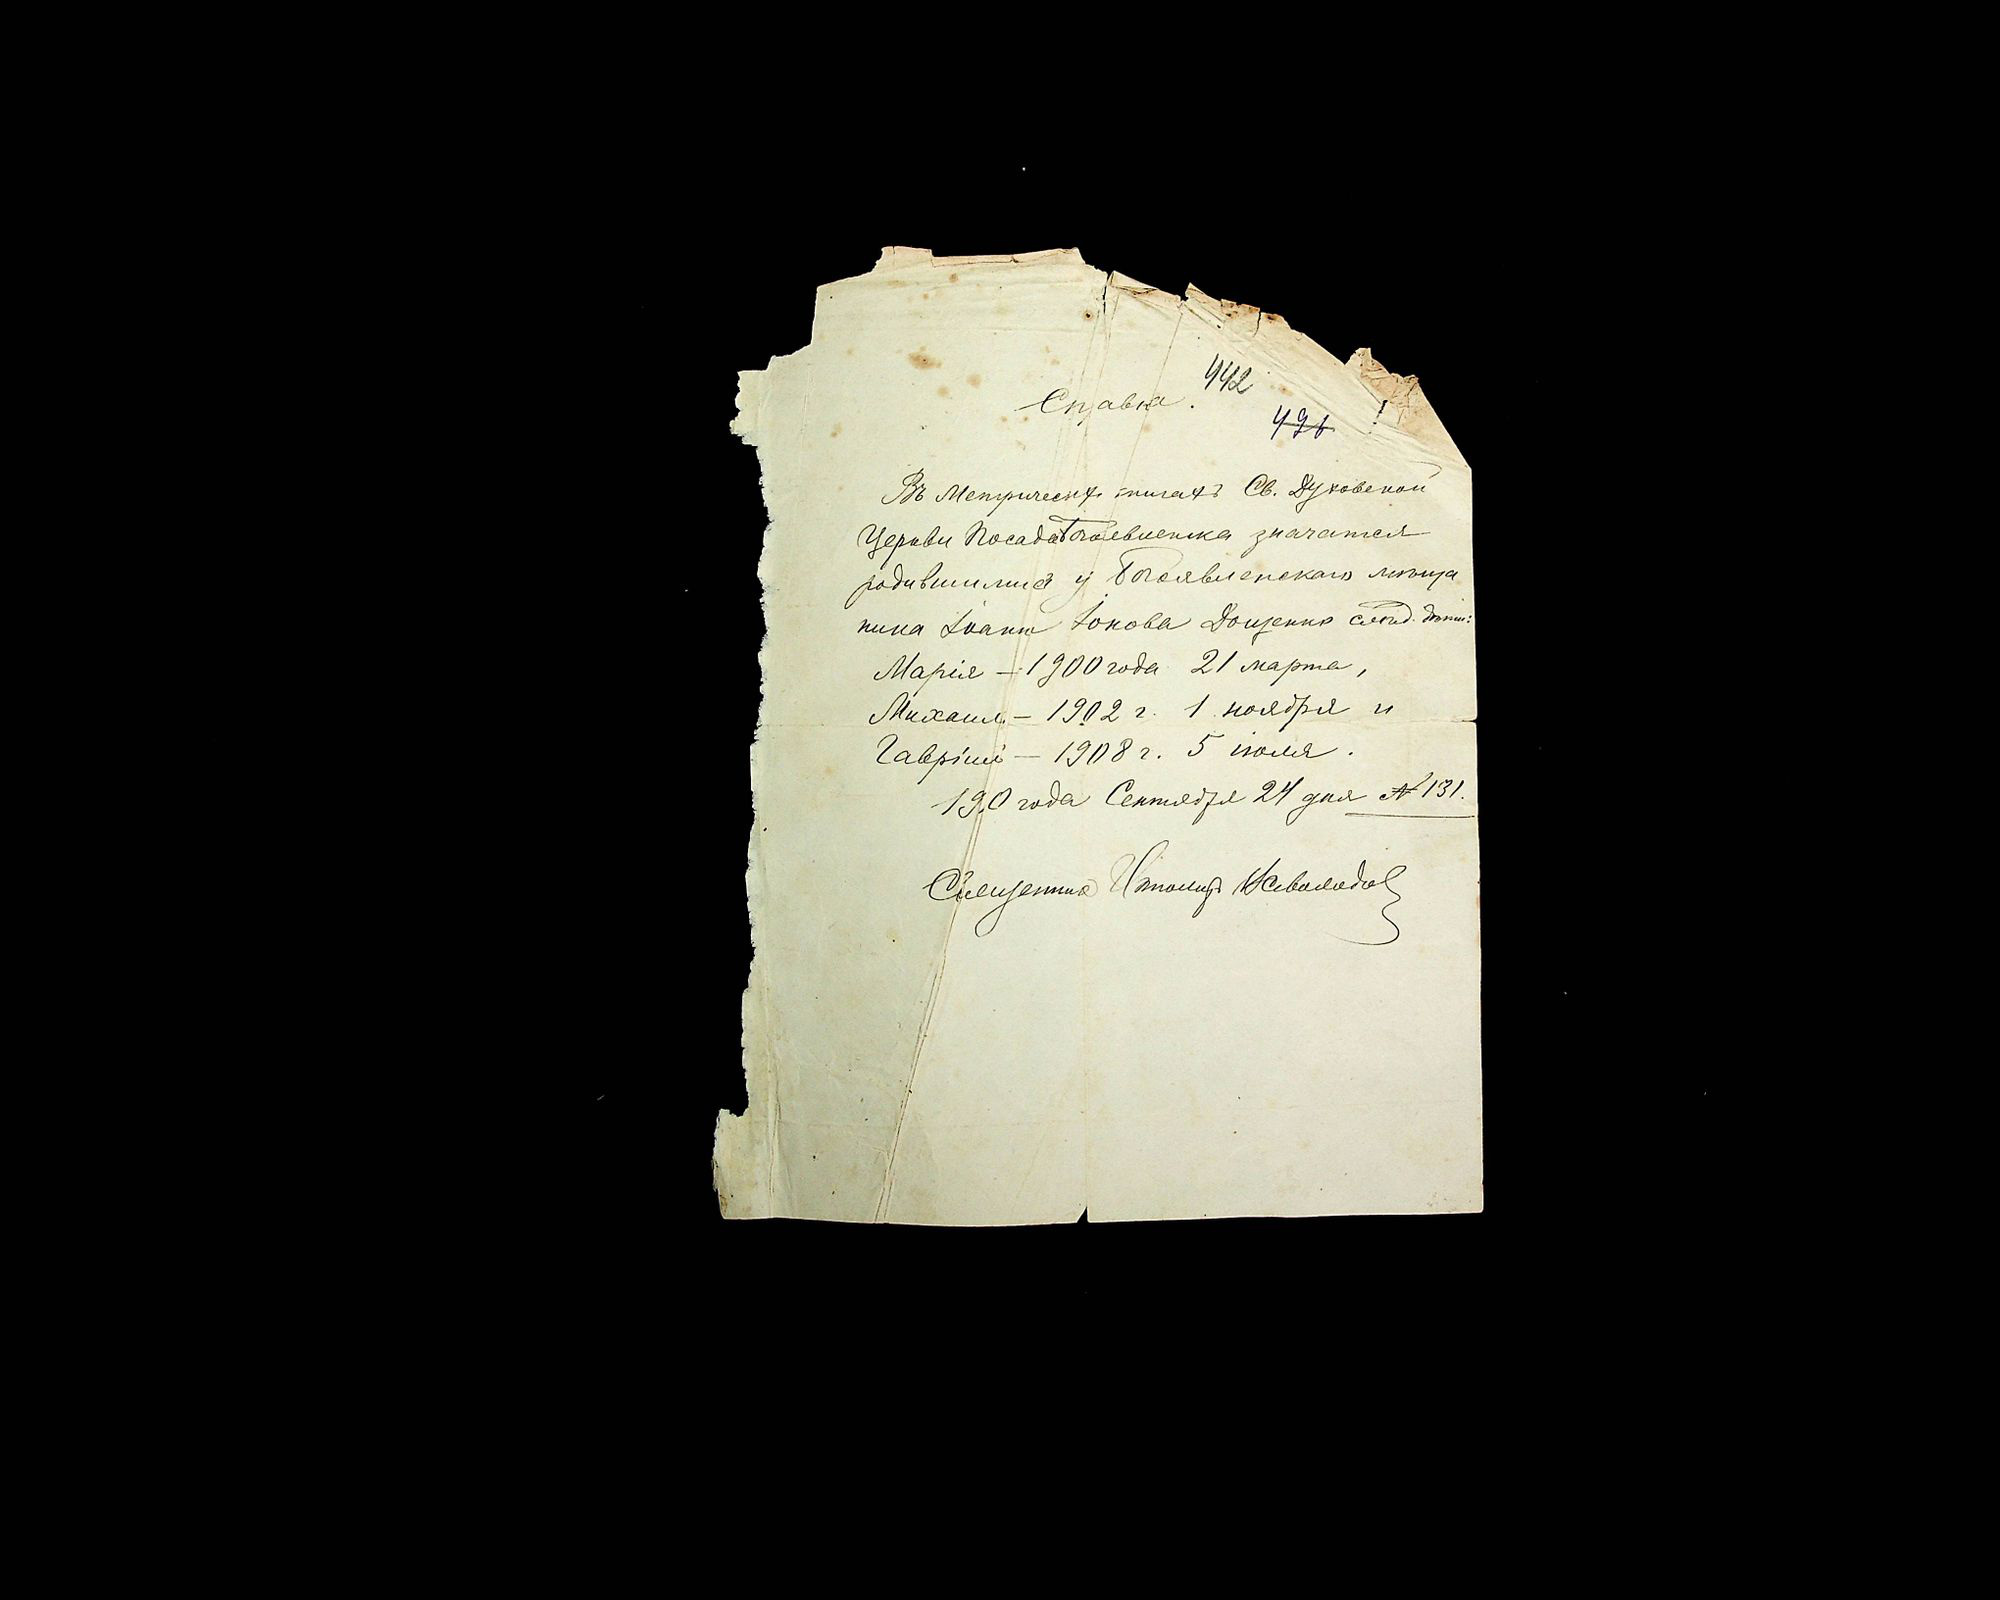 442
Справка.
496
Въ Метрическ. книгахъ Св. Духовской
Церкви Посада Богоявленска значатся
родившимися у Богоявленскаго мѣща
нина Іоанна Іонова Доценко слѣд. дѣти:
Марія – 1900 года 21 марта,
Михаил – 1902 г. 1 ноября и
Гавріил – 1908 г. 5 іюля.
1910 года Сентября 24 дня № 131.
Священник